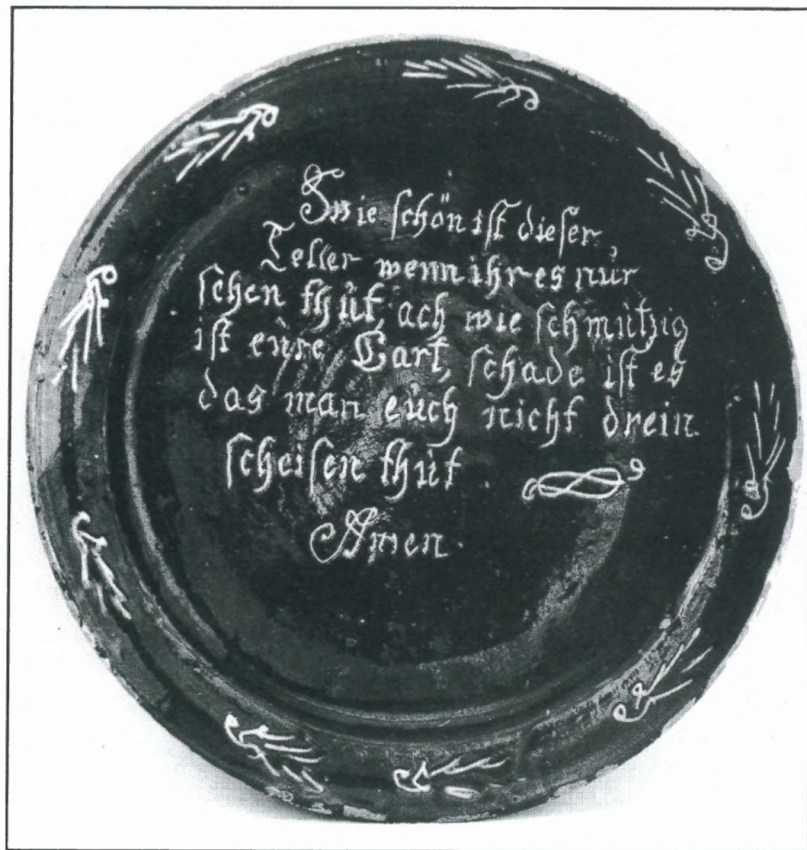 Wie schön ist dieser,
Teller wenn ihr es nur
sehen thut, ach wie schmutzig
ist eure Gart, schade ist es
das man euch nicht drein
scheisen thut.
Amen.